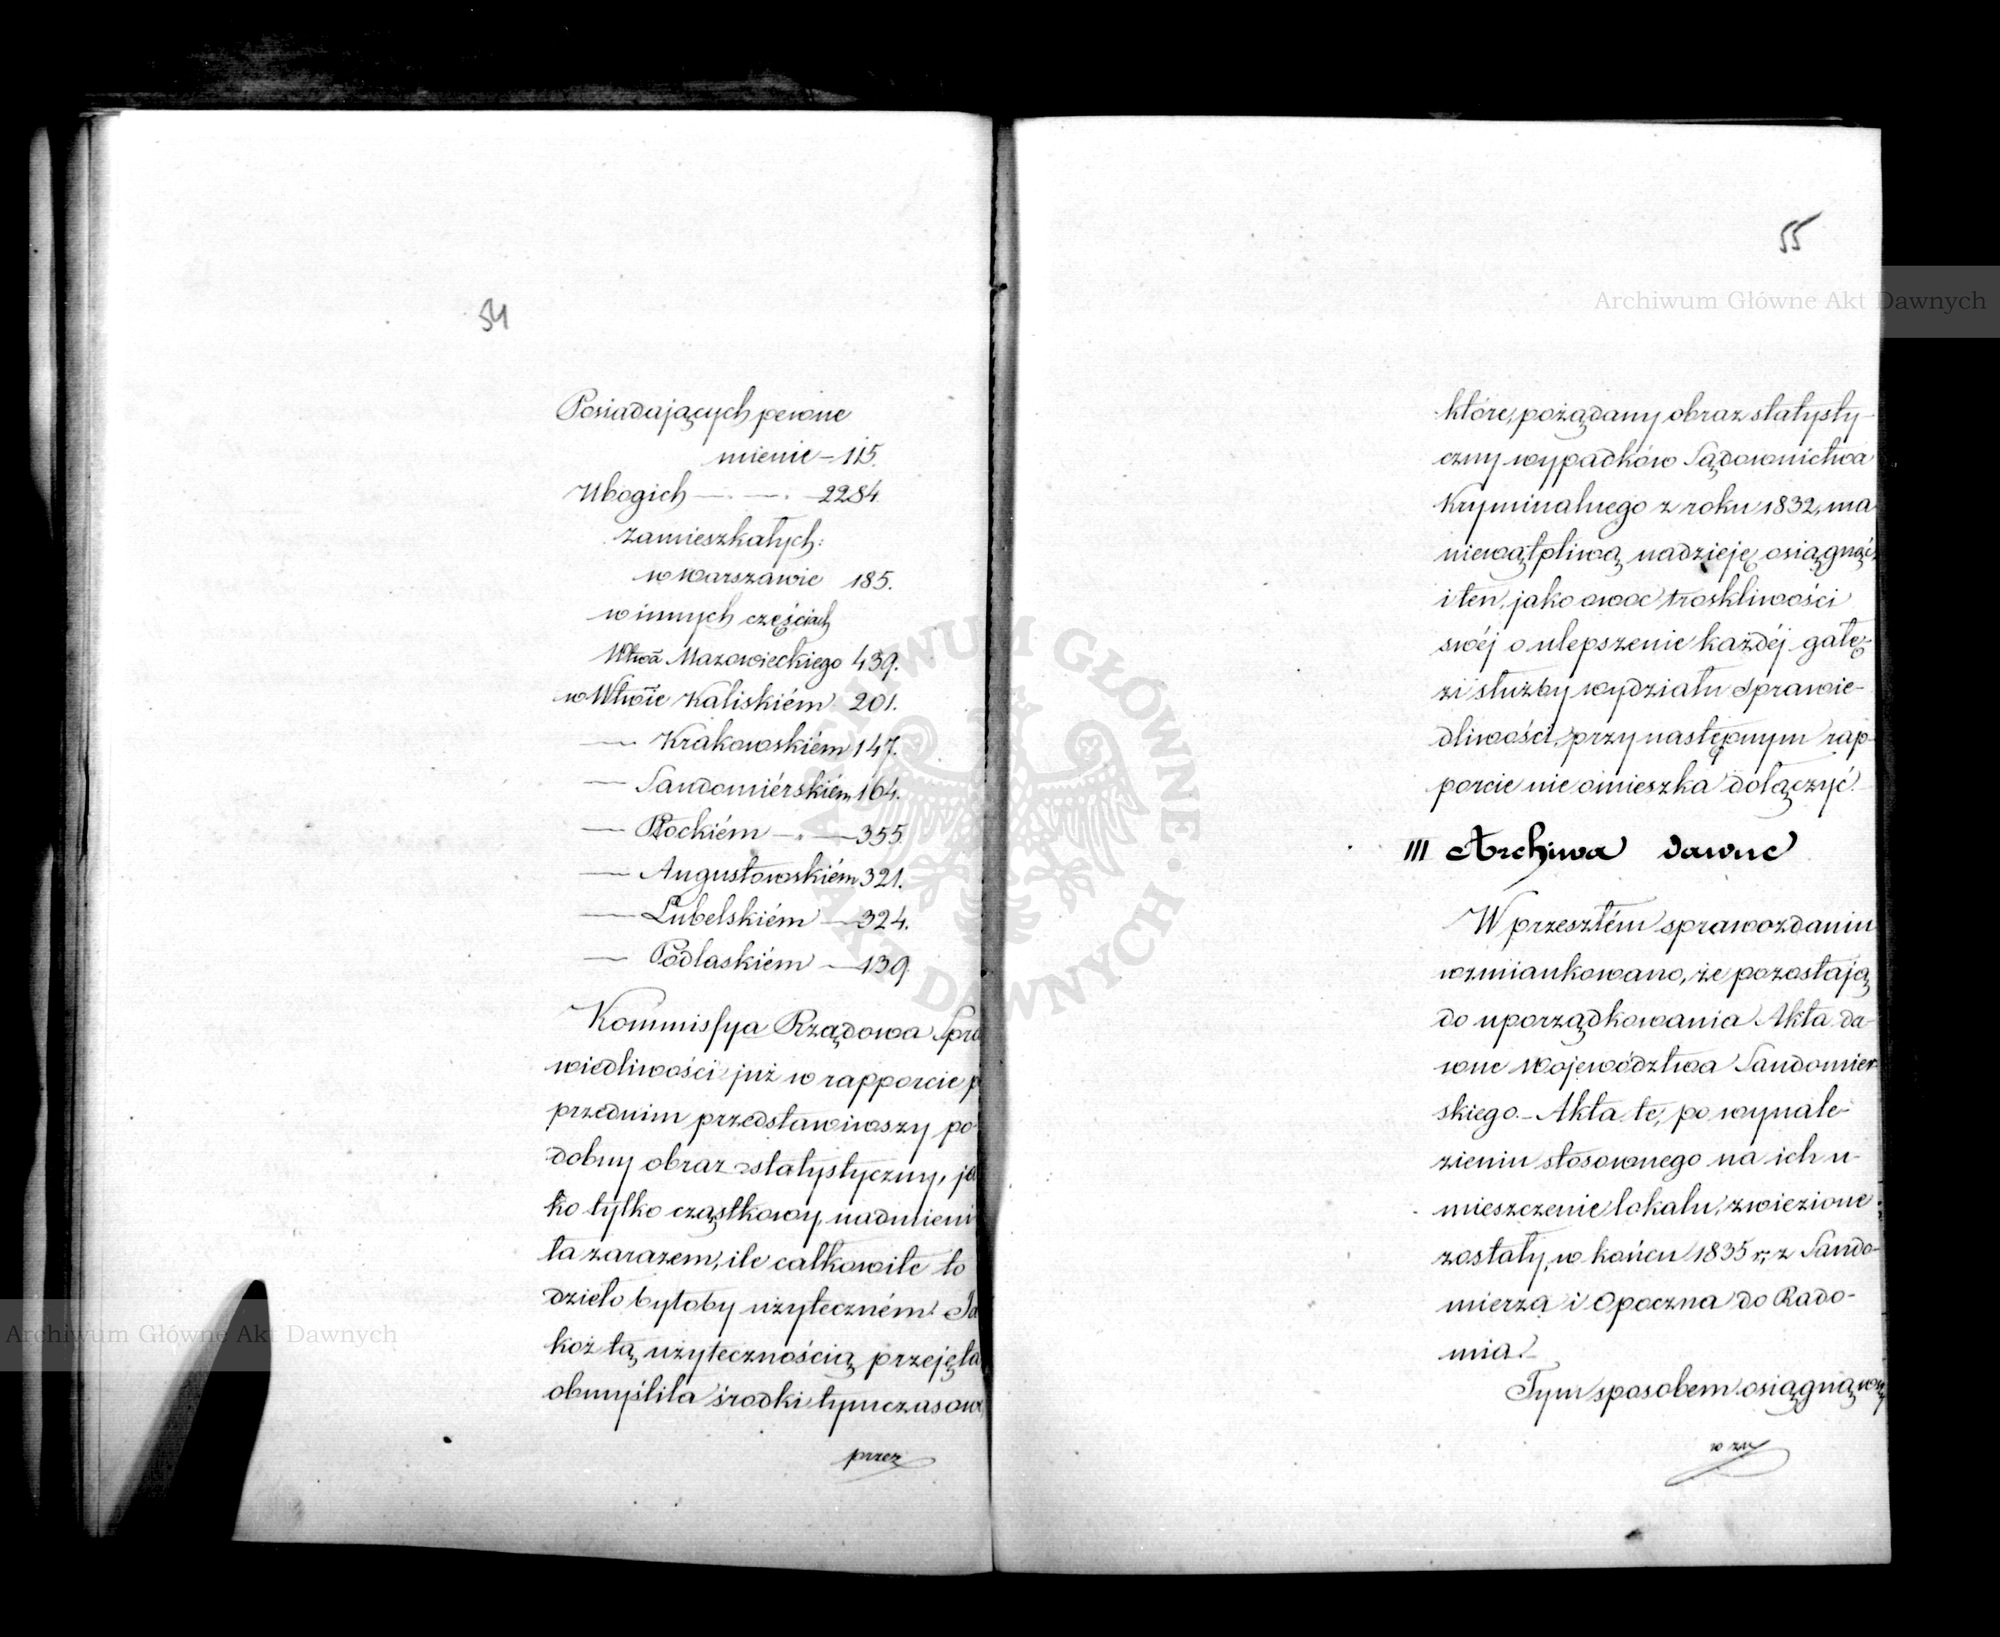 54
Posiadających pewne
mienie — 115.
Ubogich — . — . — 2284.
zamieszkałych:
w Warszawie 185.
w innych częściach
Wtwa Mazowieckiego 439.
w Wtwie Kaliskiém 201.
— Krakowskiém 147.
— Sandomiérskiém 164.
— Płockiém — . — 355.
— Augustowskiém 321.
— Lubelskiém — 324.
— Podlaskiém — 139.
Kommissya Rządowa Spra
wiedliwości już w rapporcie p
przednim przedstawiwszy po
dobny obraz statystyczny, ja
ko tylko cząstkowy, nadmieni
ła zarazem, ile całkowite to
dzieło byłoby użyteczném. Ja
koż tą użytecznością przejęta
obmyśliła środki tymczasowe,
przez
55
które, pożądany obraz statysty-
czny wypadków Sądownictwa
Kryminalnego z roku 1832, ma
niewątpliwą nadzieję osiągnąć,
i ten, jako owoc troskliwości
swéj o ulepszenie każdéj gałę-
zi służby wydziału Sprawie-
dliwości, przy następnym rap-
porcie nie omieszka dołączyć.
III Archiwa dawne
W przeszłém sprawozdaniu
wzmiankowano, że pozostają
do uporządkowania Akta da-
wne Województwa Sandomier-
skiego. — Akta te, po wynale-
zieniu stosownego na ich u-
mieszczenie lokalu, zwiezione
zostały, w końcu 1835 r., z Sando-
mierza i Opoczna do Rado-
mia. —
Tym sposobem osiągnąwszy
w zu
Archiwum Główne Akt Dawnych
Archiwum Główne Akt Dawnych
ARCHIWUM GŁÓWNE AKT DAWNYCH